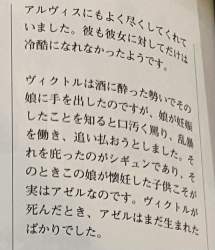 アルヴィスにもよく尽くしてくれて
いました。彼も彼女に対してだけは
冷酷になれなかったようです。
ヴィクトルは酒に酔った勢いでその
娘に手を出したのですが、娘が妊娠
したことを知ると口汚く罵り、乱暴
を働き、追い払おうとしました。そ
れを庇ったのがシギュンであり、そ
のときこの娘が懐妊した子供こそが
実はアゼルなのです。ヴィクトルが
死んだとき、アゼルはまだ生まれた
ばかりでした。